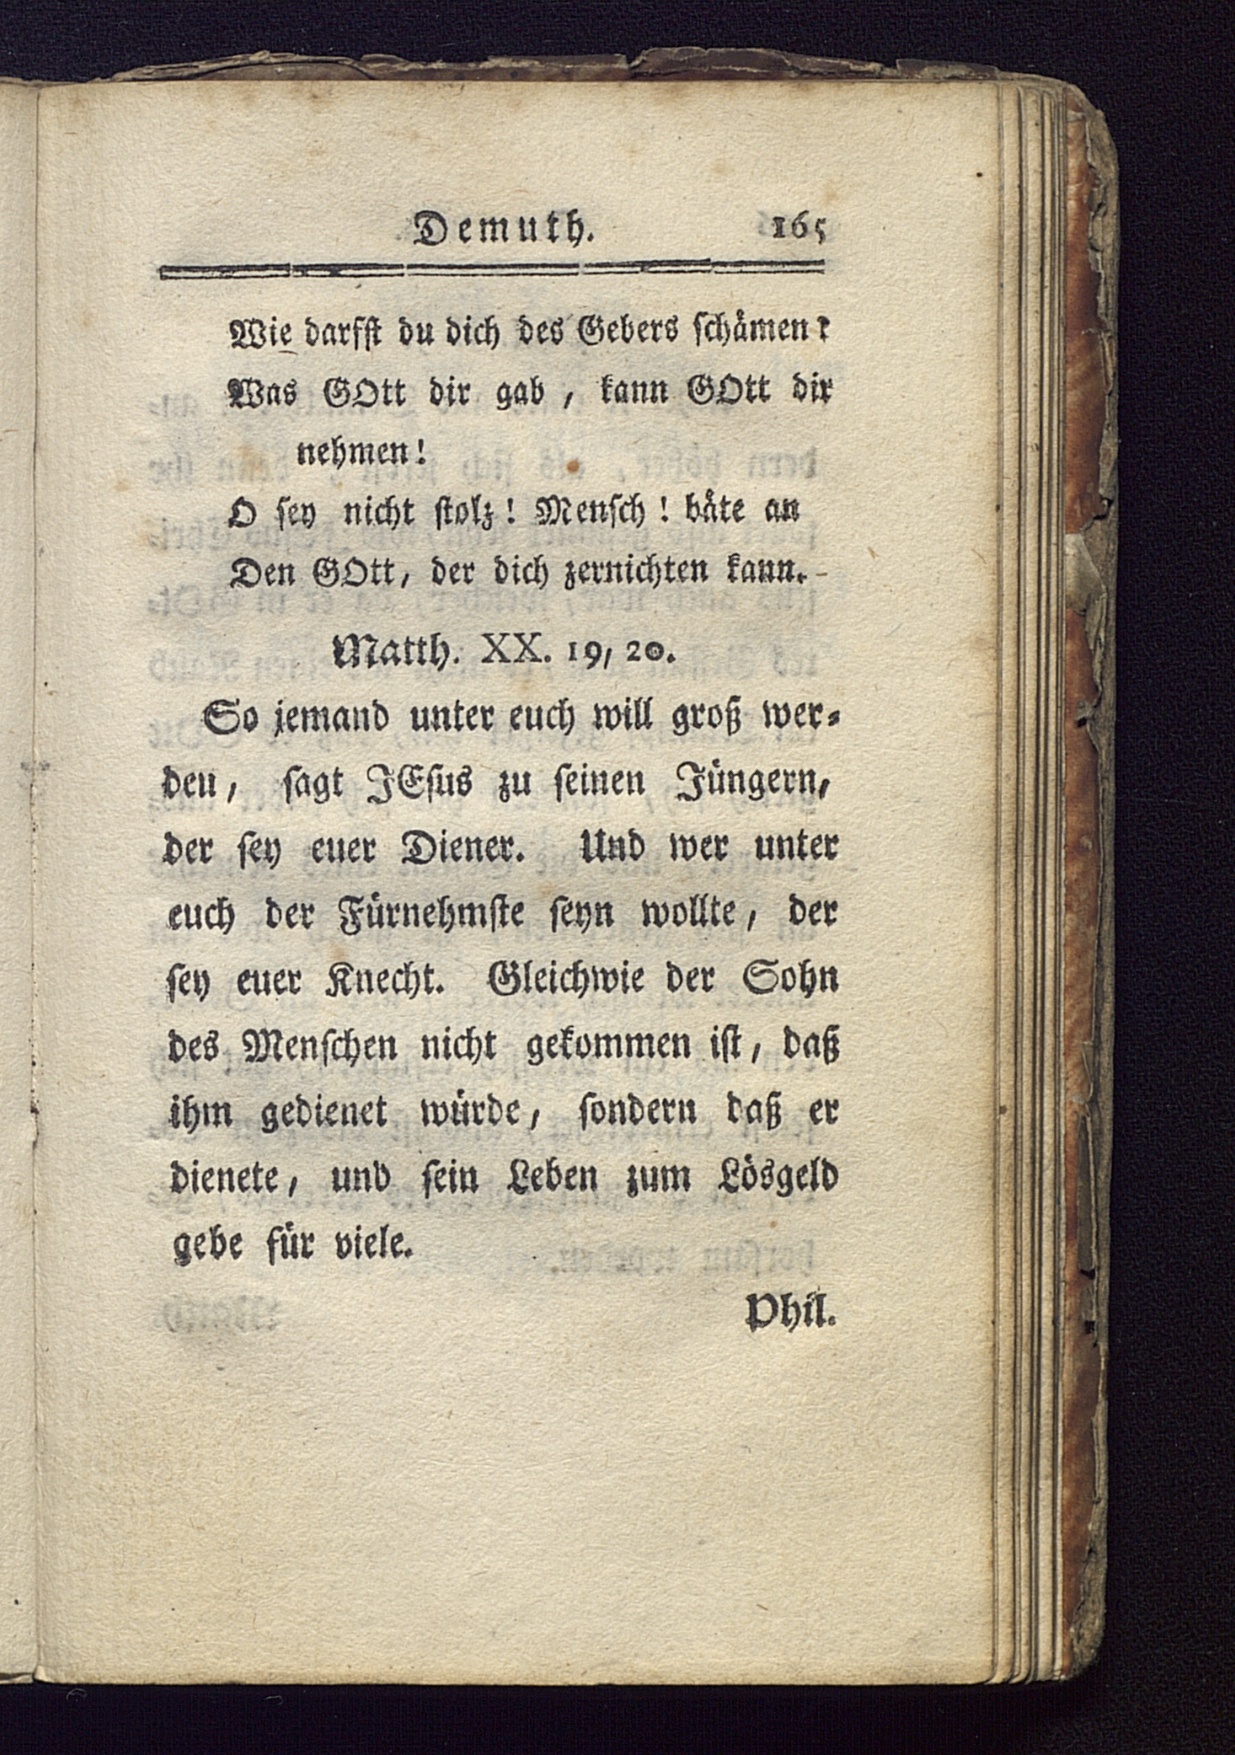 Demuth. 165
Wie darfst du dich des Gebers schämen?
Was GOtt dir gab, kann GOtt dir
nehmen!
O sey nicht stolz! Mensch! bäte an
Den GOtt, der dich zernichten kann.
Matth. XX. 19, 20.
So jemand unter euch will groß wer-
den, sagt JEsus zu seinen Jüngern,
der sey euer Diener. Und wer unter
euch der Fürnehmste seyn wollte, der
sey euer Knecht. Gleichwie der Sohn
des Menschen nicht gekommen ist, daß
ihm gedienet würde, sondern daß er
dienete, und sein Leben zum Lösgeld
gebe für viele.
Phil.